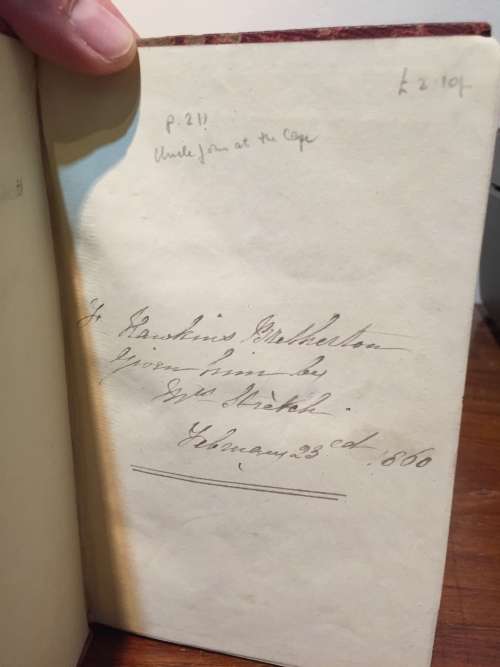 £2.10/-
p. 211
Uncle John at the Cape
Hawkins Bretherton
given him by
Mrs Stretch.
February 23rd 1860